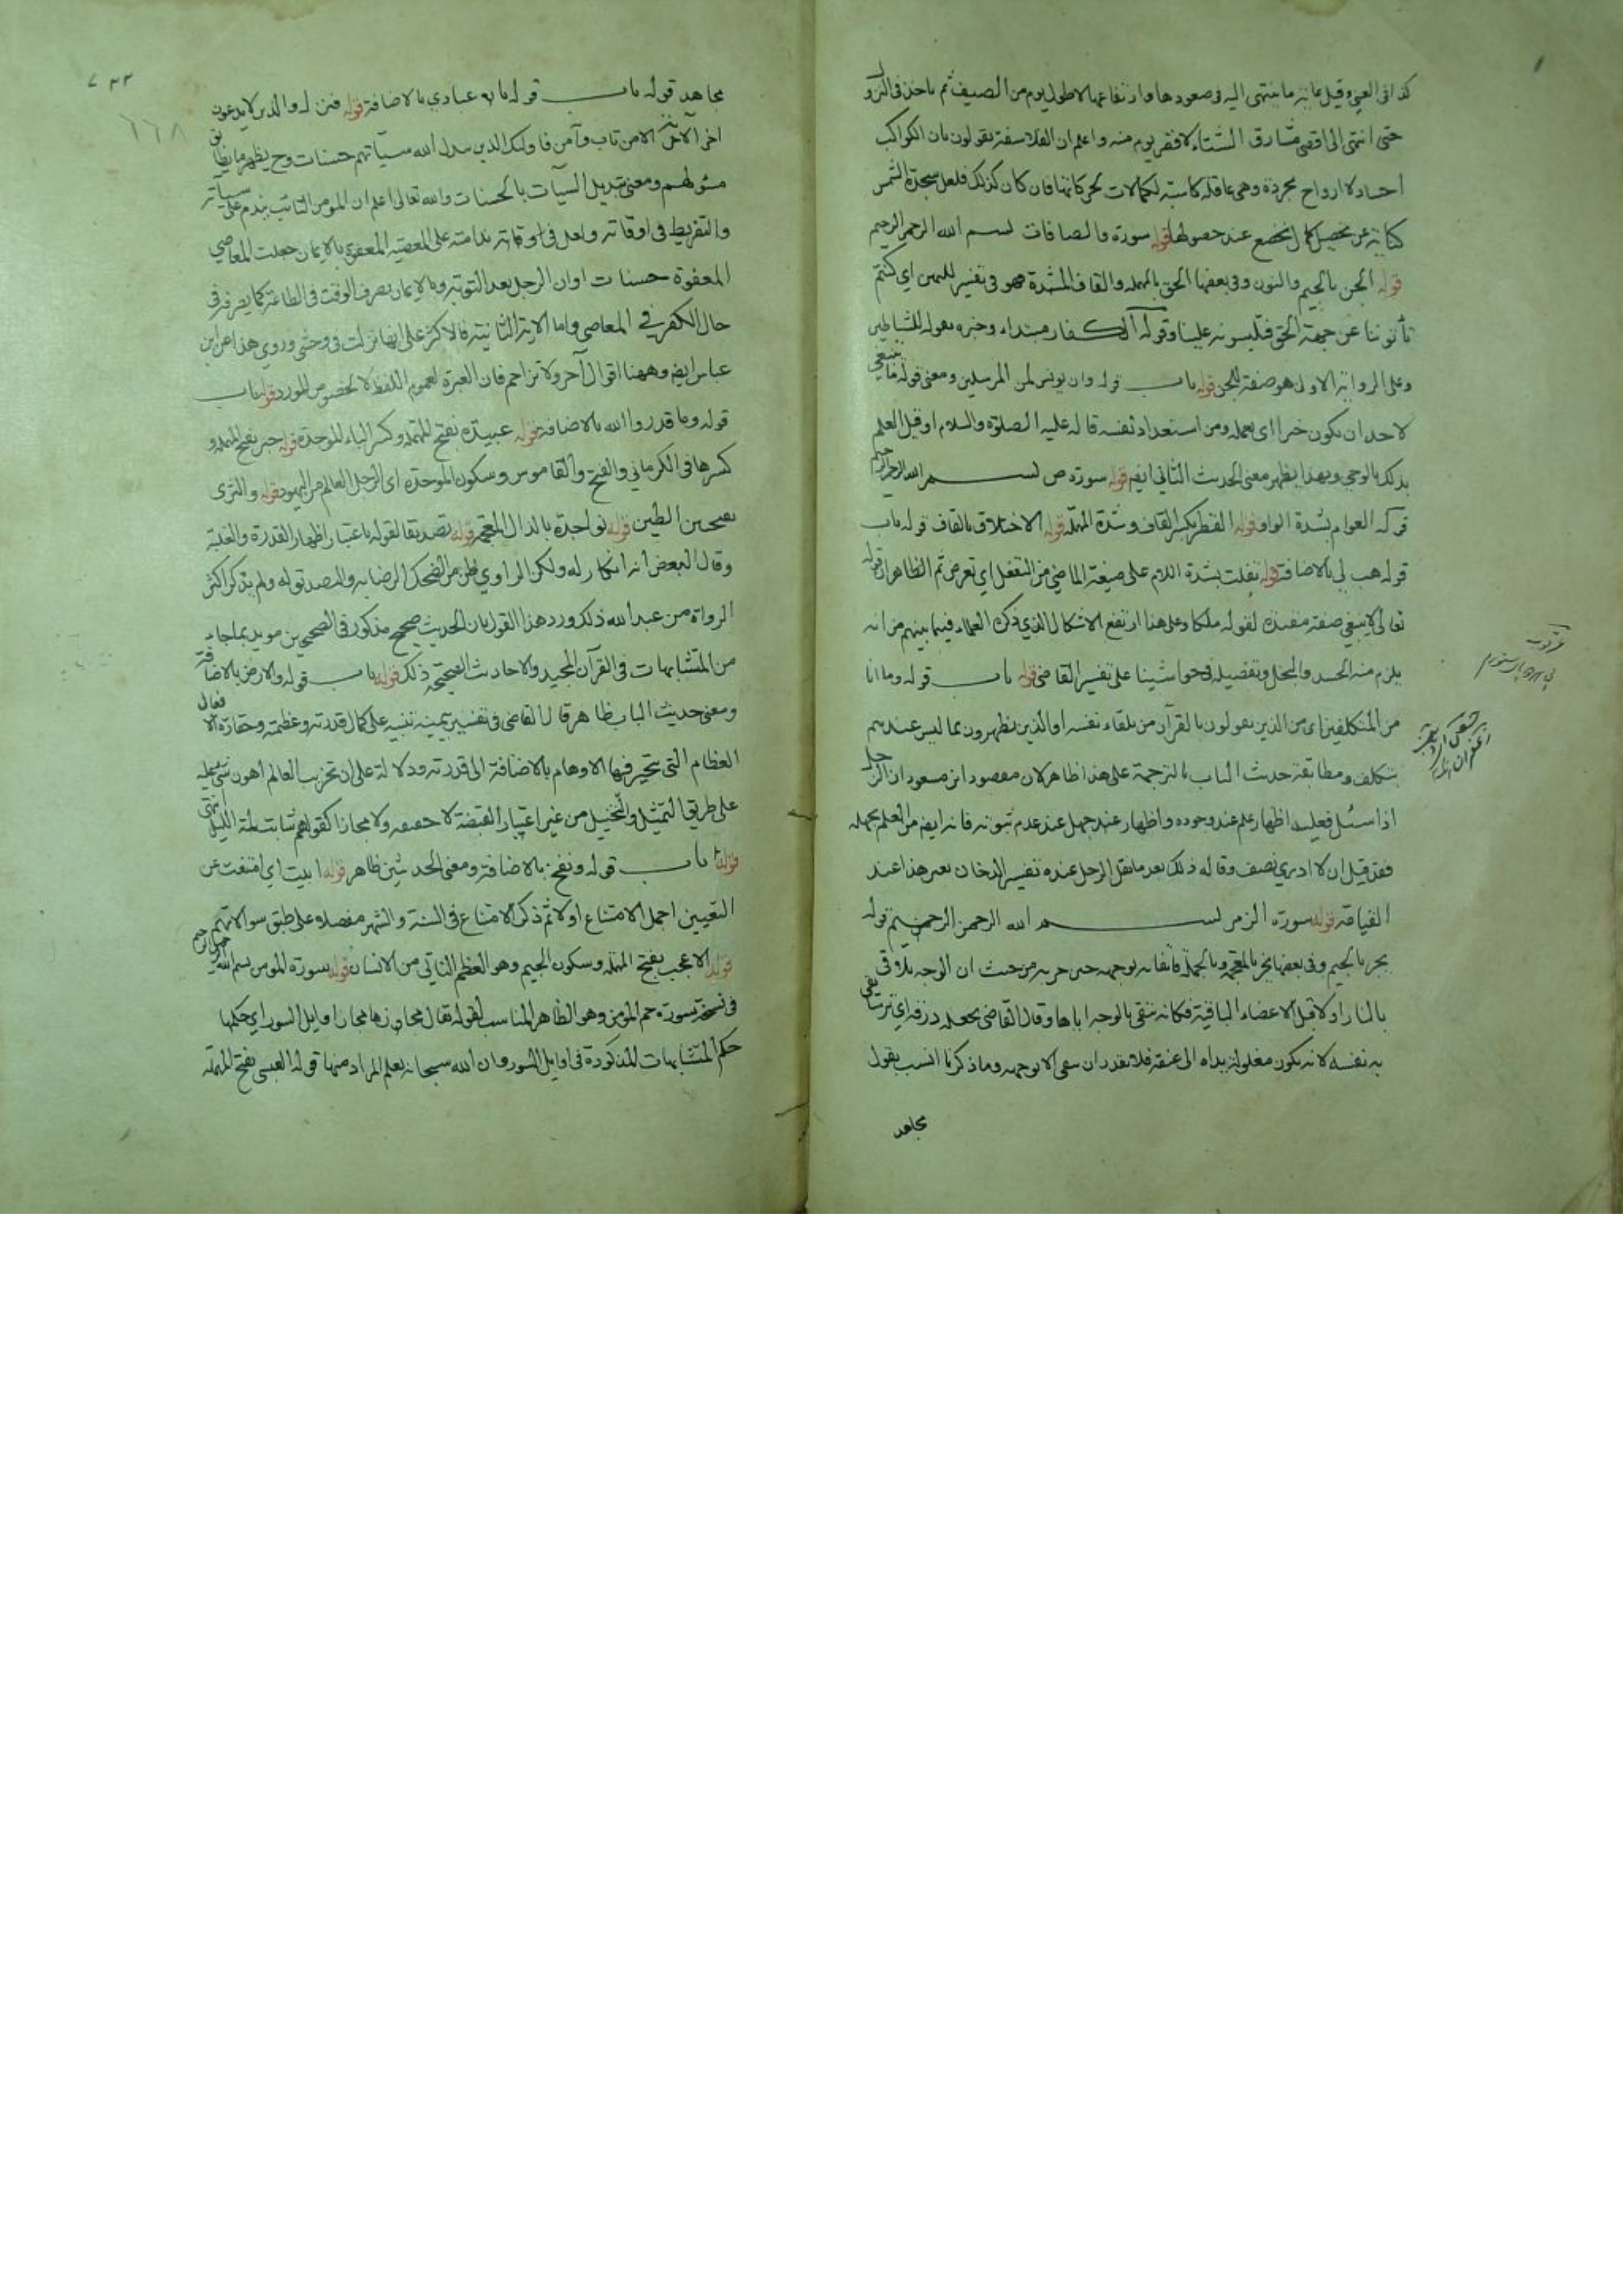 كذا في العيني وقيل غايته ما ينتهي اليه في صعودها وارتفاعها لاطول يوم من الصيف ثم ياخذ في النزول
حتى انتهى الى اقصى مشارق الشتاء لاقصر يوم منه واعلم ان الفلاسفة يقولون بان الكواكب
اجساد لا ارواح مجردة وهي عاقلة كاسبة لكمالات فان كان كذلك فلعل سجدة الشمس
كناية عن تحصيل كمال يخضع عند حصولها قوله سورة والصافات بسم الله الرحمن الرحيم
قوله الجن بالجيم والنون وفي بعضها الحق بالمهملة والقاف المشددة فهو في تفسير لليمين اي كنتم
تأتوننا عن جهة الحق فتلبسونه علينا وقوله الكفار مبتداء وخبره بقوله للشياطين
وعلى الرواية الاولى هو صفة للجن قوله باب قوله وان يونس لمن المرسلين ومعنى قوله ما ينبغي
لاحد ان يكون خيرا اي بعمله ومن استعداد نفسه قاله عليه الصلوة والسلام اوقبل العلم
بذلك بالوحي وبهذا يظهر معنى الحديث الثاني ايضا قوله سورة ص بسم الله الرحمن الرحيم
قوله العوام بشدة الواو قوله القط بكسر القاف وشدة المهملة قوله الاختلاق بالقاف قوله باب
قوله هب لي بالاضافة قوله تفلت بشدة اللام على صيغة الماضي من التفعل اي تعرض ثم الظاهر ان قوله
تعالى لا ينبغي صفة مقيدة لقوله ملكا وعلى هذا ارتفع الاشكال الذي ذكره العلماء فيما بينهم من انه
يلزم منه الحسد والبخل وتفصيله في حواشينا على تفسير القاضي قوله باب قوله وما انا
من المتكلفين اي من الذين يقولون بالقرآن من تلقاء نفسه او الذين يظهرون بما ليس عندهم
بتكلف ومطابقة حديث الباب بالترجمة على هذا ظاهر لان مقصود ابن مسعود ان الرجل
اذا سئل فعليه اظهار علم عند وجوده واظهار جهل عند عدم ثبوته فانه ايضا من العلم بجهله
فقد قيل ان لا ادري نصف وقاله ذلك بعد ما نقل الرجل عنده تفسير الدخان بعد هذا عند
القيامة قوله سورة الزمر بسم الله الرحمن الرحيم قوله
يجر بالجيم وفي بعضها يخر بالمعجمة وبالجملة فاتقائه بوجهه حين جر به من حيث ان الوجه يلاقي
بالنار اولا قبل الاعضاء الباقية فكانه يتقي بالوجه اياها وقال القاضي يجعله درقة اي ترسا يقي
به نفسه لانه يكون مغلولة يداه الى عنقه فلا يقدر ان يتقي الا بوجهه وما ذكرنا انسب بقول
مجاهد
٧٣٣
٦٦٨
مجاهد قوله باب قوله يا عبادي بالاضافة قوله فنزل والذين لا يدعون
اخر الآخر الا من تاب وآمن فاولئك الذين يبدل الله سيآتهم حسنات وح يظهر ما يطابق
سئولهم ومعنى تبديل السيآت بالحسنات والله تعالى اعلم ان المؤمن التائب يندم على سيآته
والتفريط في اوقاته ولعل في اوقاته ندامته على المعصية المعفوة بالايمان جعلت المعاصي
المعفوة حسنات او ان الرجل بعد التوبة وبالايمان يصرف الوقت في الطاعة كما يصرف في
حال الكفر في المعاصي واما الاية الثانية فالاكثر على انها نزلت في وحشي وروي هذا عن ابن
عباس ايضا وههنا اقوال آخر ولا تزاحم فان العبرة لعموم اللفظ لا لخصوص المورد قوله باب
قوله وما قدروا الله بالاضافة قوله عبيدة بفتح المهملة وكسر الباء الموحدة قوله حبر بفتح المهملة و
كسرها في الكرماني والفتح والقاموس وسكون الموحدة اي الرجل العالم من اليهود قوله والثرى
الطين قوله نواجذه بالذال المعجمة قوله تصديقا لقوله باعتبار اظهار القدرة والغلبة
وقال البعض انه انكار له ولكن الراوي ظن من الضحك الرضا به والتصديق له ولم يذكر اكثر
الرواة من عبد الله ذلك ورد هذا القول بان الحديث صحيح مذكور في الصحيحين مويد بما جاء
من المتشابهات في القرآن المجيد والاحاديث الصحيحة ذلك قوله باب قوله والارض بالاضافة
ومعنى حديث الباب ظاهر قال القاضي في تفسير بيمينه تنبيه على كمال قدرته وعظمته وحقارة الافعال
العظام التي يتحير فيها الاوهام بالاضافة الى قدرته ودلالة على ان تخريب العالم اهون شيء عليه
على طريق التمثيل والتخييل من غير اعتبار القبضة لا حقيقة ولا مجازا كقولهم شابت لمة الليل انتهى
قوله باب قوله ونفخ بالاضافة ومعنى الحديثين ظاهر قوله ابيت اي امتنعت عن
التعيين اجمل الامتناع اولا ثم ذكر الامتناع في السنة والشهر مفصلا وعلى طبق سوالاتهم
قوله الا عجب بفتح المهملة وسكون الجيم وهو العظم الناتي من الانسان قوله سورة المومن بسم الله الرحمن الرحيم
في نسخة سورة حم المؤمن وهو الظاهر المناسب لقوله يقال مجازها مجاز اوايل السور اي حكمها
حكم المتشابهات المذكورة في اوايل السور وان الله سبحانه يعلم المراد منها قوله العبسي بفتح المهملة